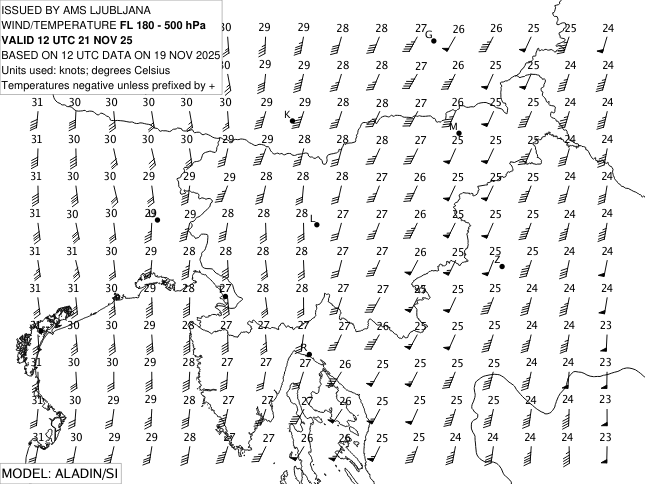 ISSUED BY AMS LJUBLJANA
WIND/TEMPERATURE FL 180 - 500 hPa
VALID 12 UTC 21 NOV 25
BASED ON 12 UTC DATA ON 19 NOV 2025
Units used: knots; degrees Celsius
Temperatures negative unless prefixed by +
30 29 29 28 28 27 26 26 25 25 24
G
30 29 29 28 28 27 26 25 25 24 24
31 30 30 30 30 30 29 29 28 28 27 26 25 25 24 24
K
M
31 30 30 30 30 29 29 28 28 28 27 25 25 25 24 24
31 30 30 29 29 29 28 28 28 27 26 25 25 25 24 24
31 30 30 29 29 28 28 28 27 27 26 25 25 25 24 24
L
31 31 30 29 28 28 28 28 27 27 26 25 25 25 24 24
Z
31 31 30 29 28 27 28 28 27 27 25 25 25 25 24 24
31 30 30 29 28 27 27 27 27 26 25 25 25 24 24 23
R
31 30 30 29 28 27 27 27 26 25 25 25 25 24 24 23
30 30 29 29 28 27 27 27 26 25 25 25 24 24 24 23
31 30 29 29 28 27 27 26 26 25 25 24 24 24 24 23
MODEL: ALADIN/SI